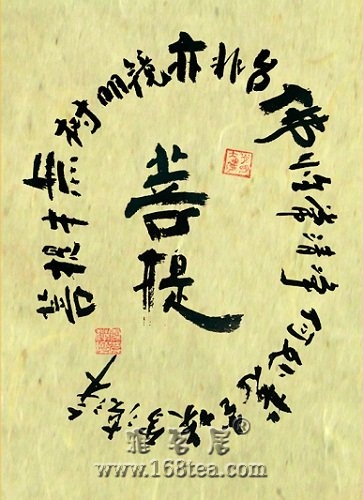 菩提
菩提本無樹明鏡亦非台佛性常清淨何处惹
雅茗居
www.168tea.com